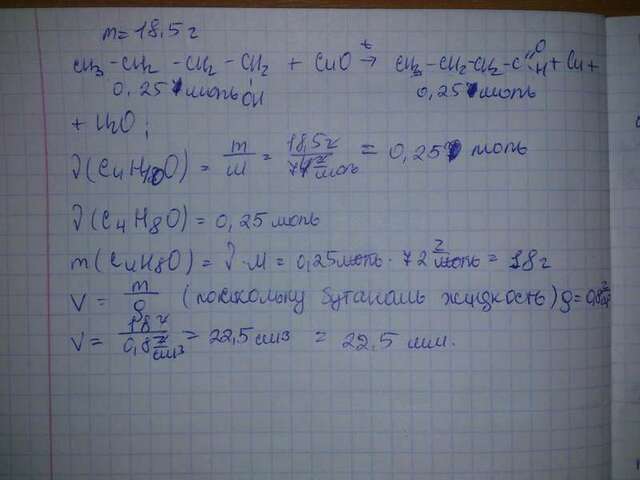 m = 18,5 г
CH3 - CH2 - CH2 - CH2 + CuO t→ CH3 - CH2 - CH2 - C O H + Cu +
0,25 моль OH 0,25 моль
+ H2O ;
ν(C4H10O) = m/M = 18,5 г / 74 г/моль = 0,25 моль
ν(C4H8O) = 0,25 моль
m(C4H8O) = ν · M = 0,25 моль · 72 г/моль = 18 г
V = m/ρ (поскольку бутаналь жидкость) ρ = 0,8
V = 18 г / 0,8 г/см3 = 22,5 см3 = 22,5 мл.